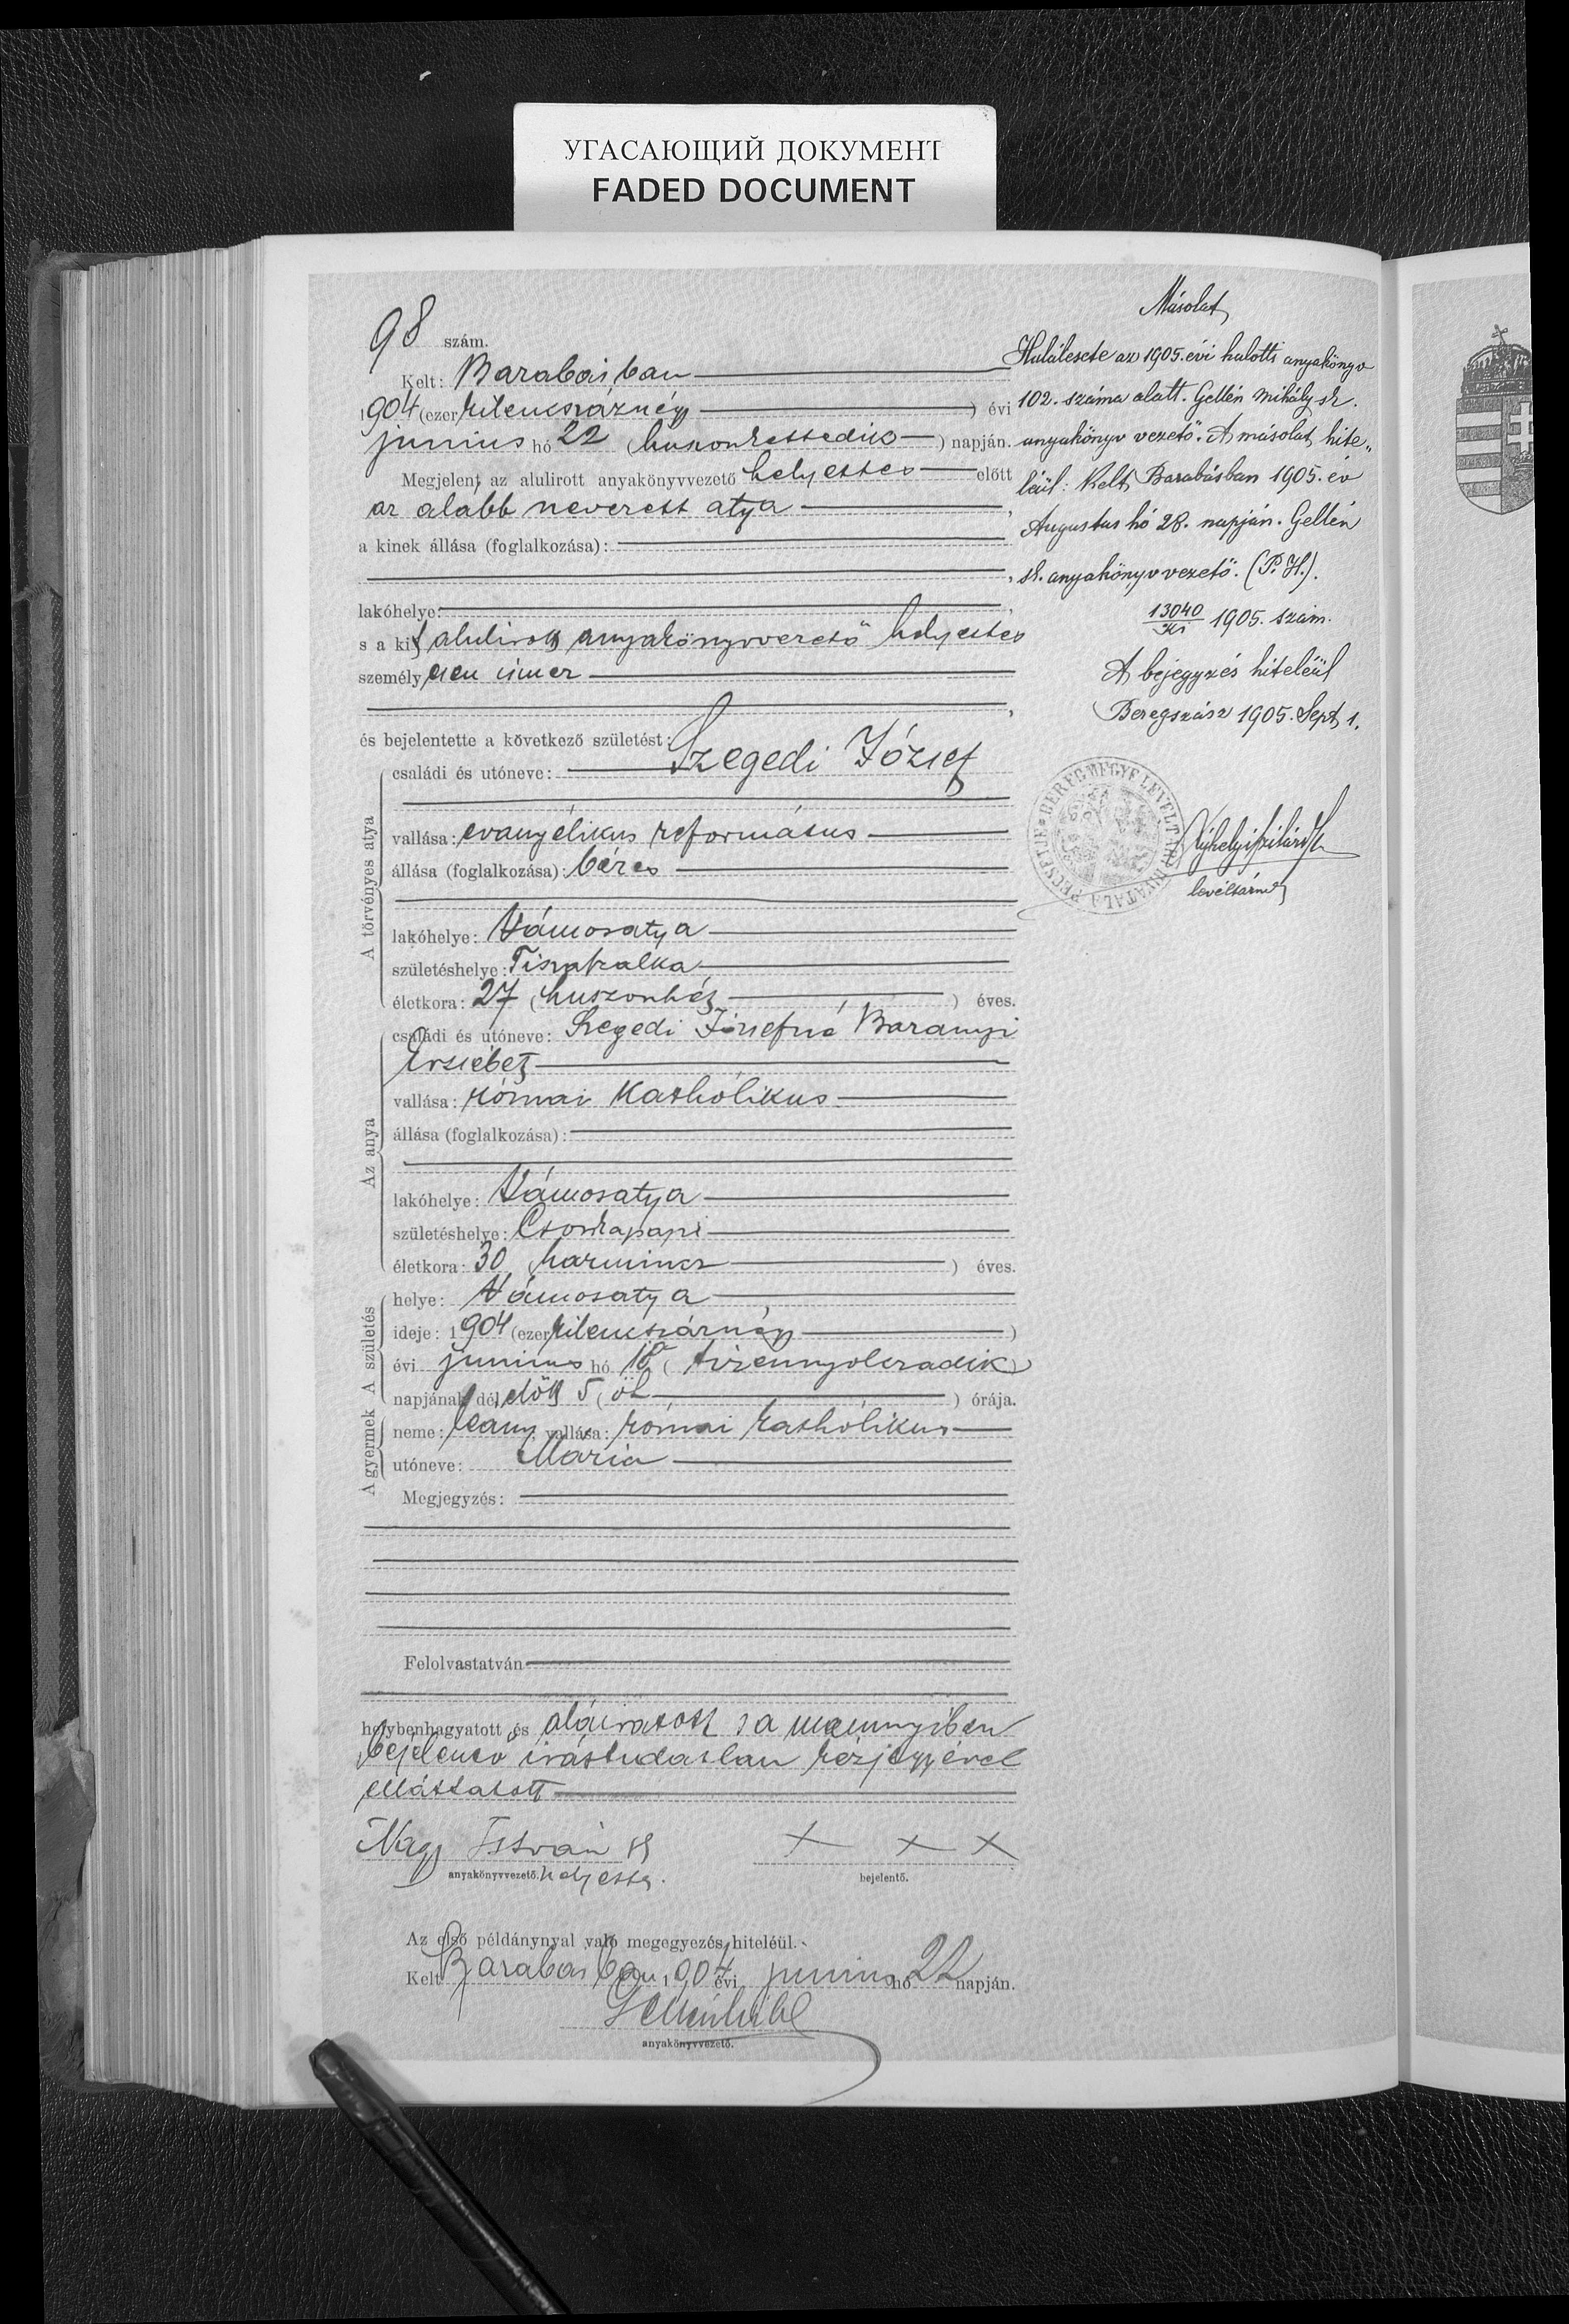 УГАСАЮЩИЙ ДОКУМЕНТ
FADED DOCUMENT
98 szám.
Kelt: Barabásban
1904 (ezerkilencszáznégy) évi
junius hó 22 (huszonkettedik) napján.
Megjelent az alulirott anyakönyvvezető helyettes előtt
az alább nevezett atya,
a kinek állása (foglalkozása):
lakóhelye:
s a kit alulirott anyakönyvvezető helyettes
személyesen ismer
és bejelentette a következő születést:
A törvényes atya
családi és utóneve: Szegedi József
vallása: evangélikus református
állása (foglalkozása): béres
lakóhelye: Vámosatya
születéshelye: Tiszaszalka
életkora: 27 (huszonhét) éves.
Az anya
családi és utóneve: Szegedi Józsefné Baranyi
Erzsébet
vallása: római katholikus
állása (foglalkozása):
lakóhelye: Vámosatya
születéshelye: Csonkapapi
életkora: 30 (harmincz) éves.
A születés
helye: Vámosatya
ideje: 1904 (ezerkilencszáznégy)
évi junius hó 18 (tizennyolczadik)
napjának dél előtt 5 (öt) órája.
A gyermek
neme: leány, vallása: római katholikus
utóneve: Mária
Megjegyzés:
Felolvastatván
helybenhagyatott és aláiratott s a mennyiben
bejelentő irástudatlan kézjegyével
elláttatott
Nagy István sk + + +
anyakönyvvezető. helyettes. bejelentő.
Az első példánynyal való megegyezés hiteléül.
Kelt Barabásban 1904 évi junius hó 22 napján.
anyakönyvvezető.
Másolat
Halálesete az 1905. évi halotti anyakönyv
102. száma alatt. Gellén Mihály sk.
anyakönyv vezető. A másolat hite„
léül: Kelt Barabásban 1905. év
Augustus hó 28. napján. Gellén
sk. anyakönyvvezető. (P. H.).
13040/Ki 1905. szám.
A bejegyzés hiteléül
Beregszász 1905. Sept 1.
BEREGMEGYE LEVÉLTÁRI HIVATALA PECSÉTJE
levéltárnok